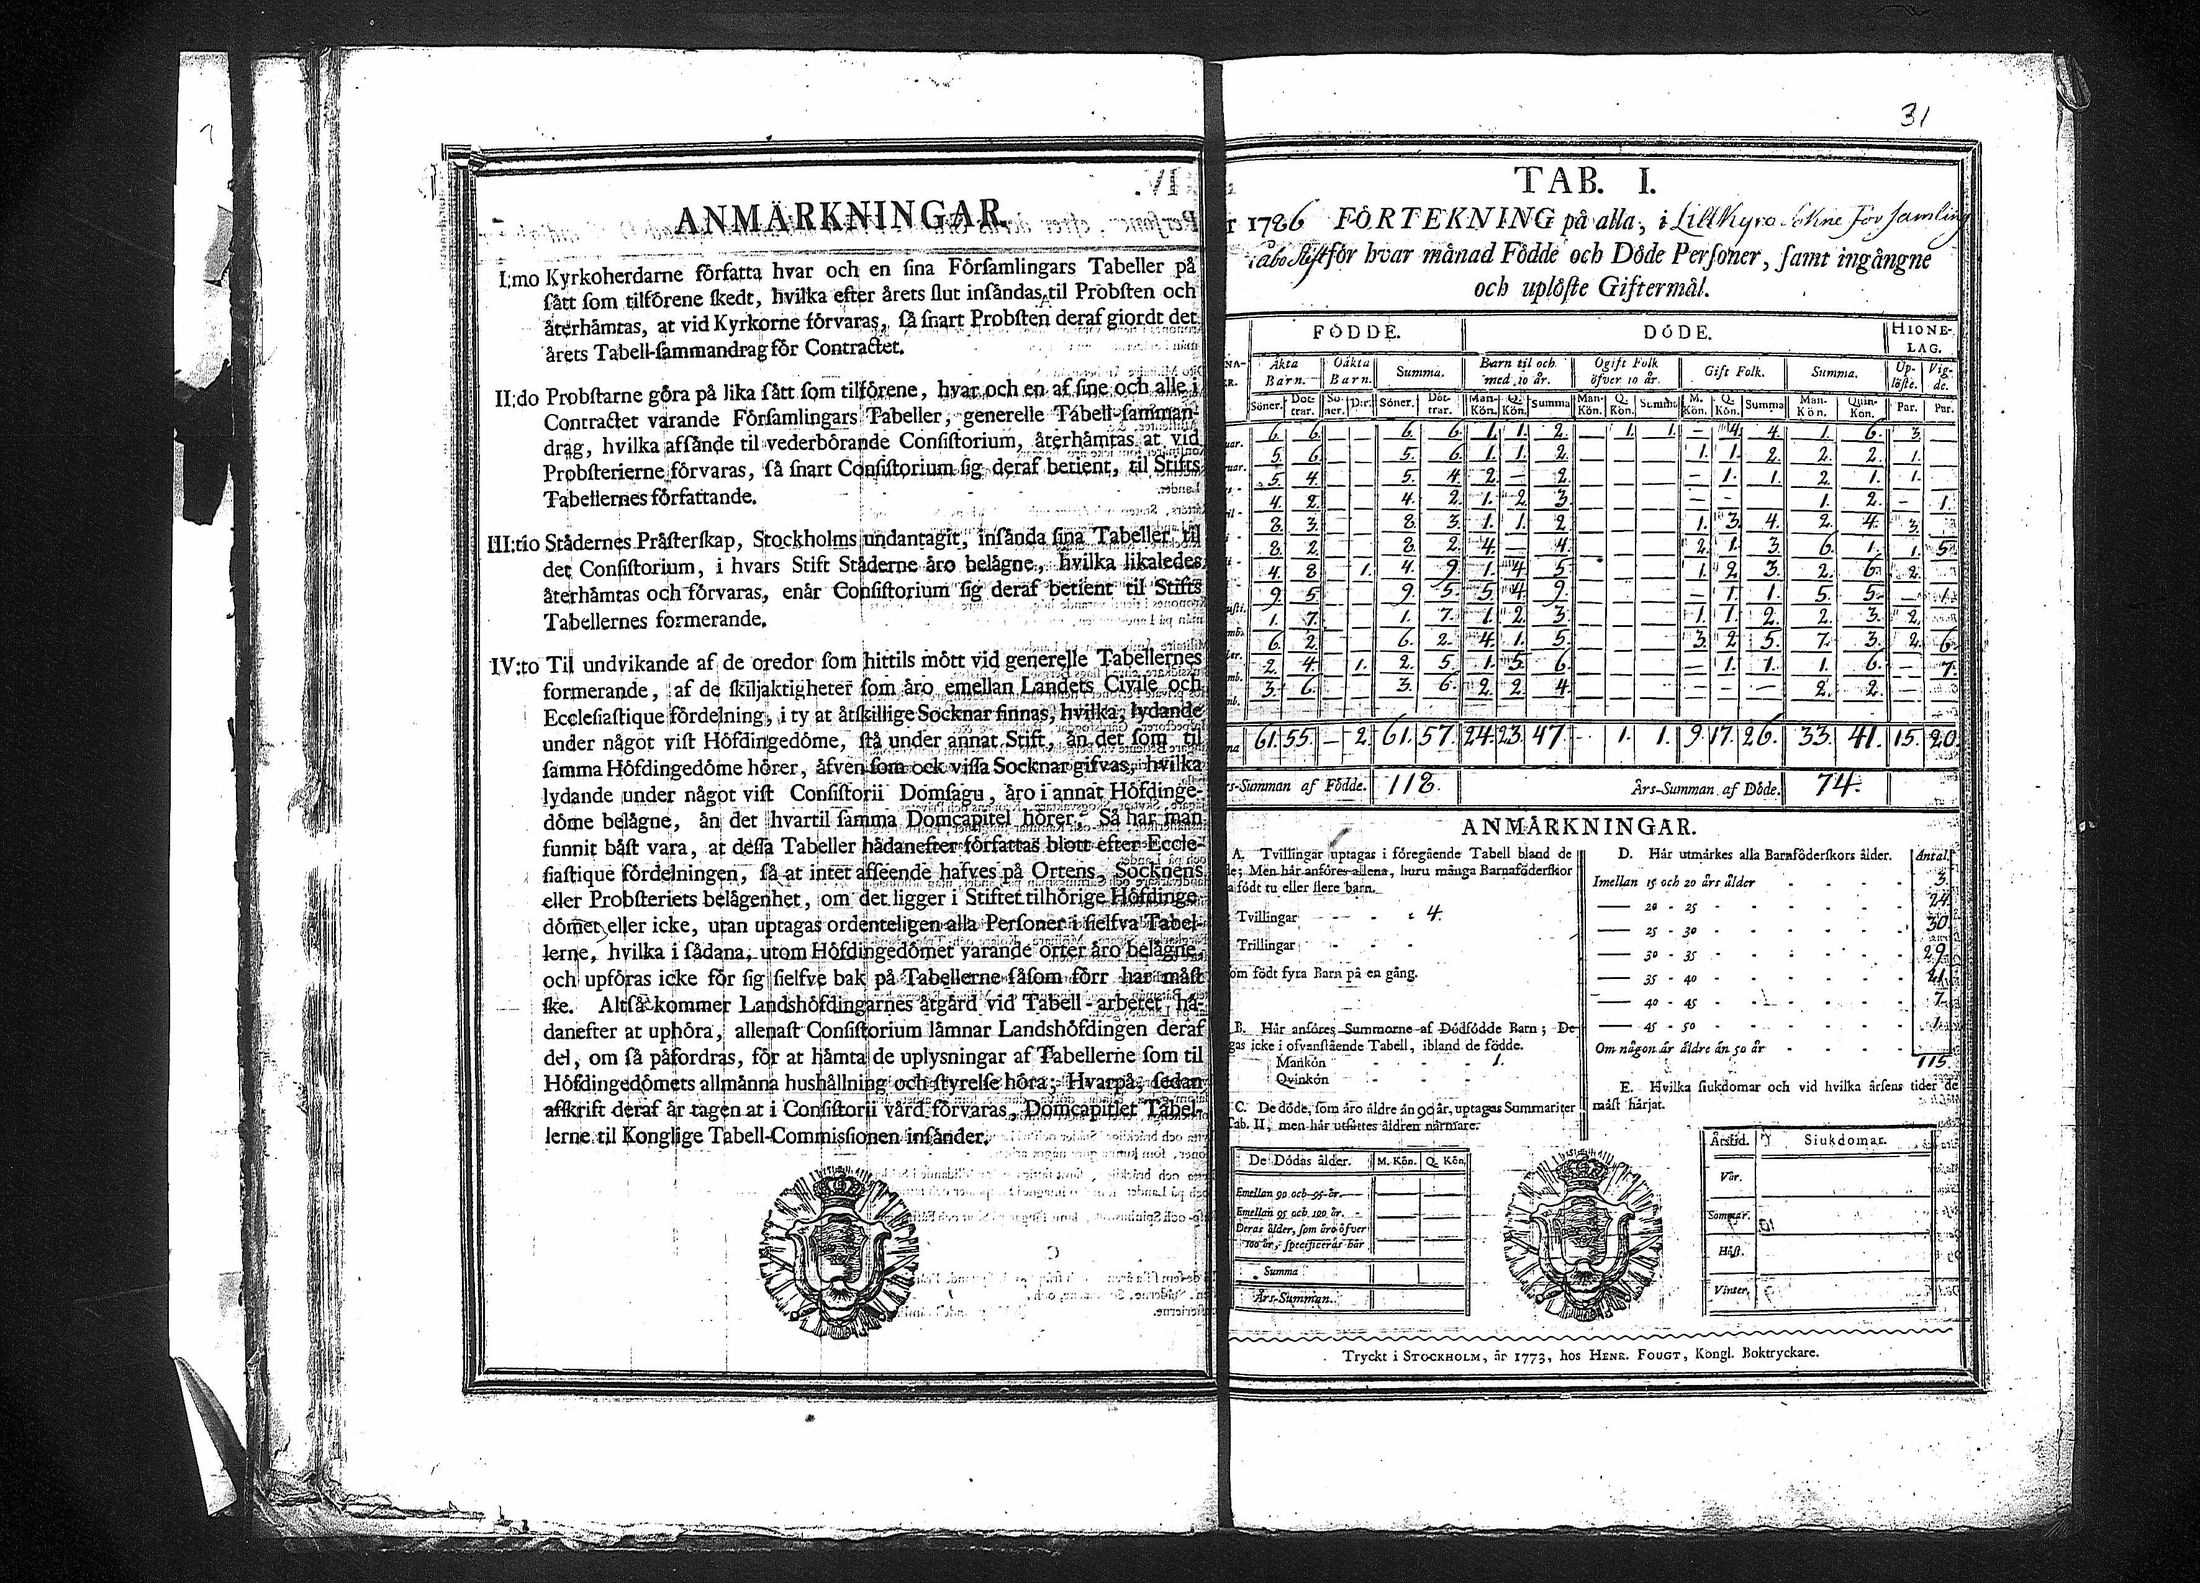 ANMÄRKNINGAR.
I:mo Kyrkoherdarne författa hvar och en sina Församlingars Tabeller på
sätt som tilförene skedt, hvilka efter årets slut insändas til Probsten och
återhämtas, at vid Kyrkorne förvaras, så snart Probsten deraf giordt det
årets Tabell-sammandrag för Contractet.
II:do Probstarne göra på lika sätt som tilförene, hvar och en af sine och alle i
Contractet varande Församlingars Tabeller, generelle Tabell-samman-
drag, hvilka afsände til vederbörande Consistorium, återhämtas at vid
Probsterierne förvaras, så snart Consistorium sig deraf betient, til Stifts
Tabellernes författande.
III:tio Städernes Prästerskap, Stockholms undantagit, insända sina Tabeller til
det Consistorium, i hvars Stift Städerne äro belägne, hvilka likaledes
återhämtas och förvaras, enär Consistorium sig deraf betient til Stifts
Tabellernes formerande.
IV:to Til undvikande af de oredor som hittils mött vid generelle Tabellernes
formerande, af de skiljaktigheter som äro emellan Landets Civile och
Ecclesiastique fördelning, i ty at åtskillige Socknar finnas, hvilka, lydande
under något vist Höfdingedöme, stå under annat Stift, än det som til
samma Höfdingedöme hörer, äfven som ock vissa Socknar gifvas, hvilka
lydande under något vist Consistorii Domsagu, äro i annat Höfdinge-
döme belägne, än det hvartil samma Domcapitel hörer; Så har man
funnit bäst vara, at dessa Tabeller hädanefter författas blott efter Eccle-
siastique fördelningen, så at intet afseende hafves på Ortens, Socknens
eller Probsteriets belägenhet, om det ligger i Stiftet tilhörige Höfdinge-
dömet eller icke, utan uptagas ordenteligen alla Personer i sielfva Tabel-
lerne, hvilka i sådana, utom Höfdingedömet varande orter äro belägne,
och upföras icke för sig sielfve bak på Tabellerne såsom förr har måst
ske. Altså kommer Landshöfdingarnes åtgärd vid Tabell-arbetet hä-
danefter at uphöra, allenast Consistorium lämnar Landshöfdingen deraf
del, om så påfordras, för at hämta de uplysningar af Tabellerne som til
Höfdingedömets allmänna hushållning och styrelse höra; Hvarpå, sedan
afskrift deraf är tagen at i Consistorii vård förvaras, Domcapitlet Tabel-
lerne til Konglige Tabell-Commissionen insänder.
31
TAB. I.
r 1786 FÖRTEKNING på alla, i LillKyro Sokne Församling
i Åbo Stift för hvar månad Födde och Döde Personer, samt ingångne
och uplöste Giftermål.
FÖDDE. DÖDE. HIONE-
LAG.
Äkta Barn. Oäkta Barn. Summa. Barn til och med 10 år. Ogift Folk öfver 10 år. Gift Folk. Summa. Up-löste. Vig-de.
Söner. Döt-trar. Sö-ner. D:r. Söner. Döt-trar. Man-Kön. Q. Kön. Summa Man-Kön. Q. Kön. Summa M. Kön. Q. Kön. Summa Man-Kön. Quin-Kon. Par. Par.
uar. 6. 6. — — 6. 6. 1. 1. 2. — 1. 1. — 4. 4. 1. 6. 3. —
ruar. 5. 6. — — 5. 6. 1. 1. 2. — — — 1. 1. 2. 2. 2. 1. —
5. 4. — — 5. 4. 2. — 2. — — — — 1. 1. 2. 1. 1. —
4. 2. — — 4. 2. 1. 2. 3. — — — — — — 1. 2. — 1.
8. 3. — — 8. 3. 1. 1. 2. — — — 1. 3. 4. 2. 4. 3. —
8. 2. — — 8. 2. 4. — 4. — — — 2. 1. 3. 6. 1. 1. 5.
4. 8. — 1. 4. 9. 1. 4. 5. — — — 1. 2. 3. 2. 6. 2. —
9. 5. — — 9. 5. 5. 4. 9. — — — — 1. 1. 5. 5. — 1.
1. 7. — — 1. 7. 1. 2. 3. — — — 1. 1. 2. 2. 3. 2. —
6. 2. — — 6. 2. 4. 1. 5. — — — 3. 2. 5. 7. 3. 2. 6.
2. 4. — 1. 2. 5. 1. 5. 6. — — — — 1. 1. 1. 6. — 7.
3. 6. — — 3. 6. 2. 2. 4. — — — — — — 2. 2. — —
ma 61. 55. — 2. 61. 57. 24. 23. 47. — 1. 1. 9. 17. 26. 33. 41. 15. 20.
s-Summan af Födde. 118. Års-Summan af Döde. 74.
ANMÄRKNINGAR.
A. Tvillingar uptagas i föregående Tabell bland de
de; Men här anföres allena, huru många Barnaföderskor
a födt tu eller flere barn.
Tvillingar - - - 4.
Trillingar - - -
om födt fyra Barn på en gång.
B. Här anföres Summorne af Dödfödde Barn; De
gas icke i ofvanstående Tabell, ibland de födde.
Mankön - - - 1.
Qvinkön - - -
C. De döde, som äro äldre än 90 år, uptagas Summariter
Tab. II, men här utsättes åldren närmare.
De Dödas ålder. M. Kön. Q. Kön.
Emellan 90 och 95 år.
Emellan 95 och 100 år.
Deras ålder, som äro öfver
100 år, specificeras här
Summa
Års-Summan.
D. Här utmärkes alla Barnföderskors ålder. Antal.
Imellan 15 och 20 års ålder - - - 3.
— 20 - 25 - - - 24.
— 25 - 30 - - - 30.
— 30 - 35 - - - 29.
— 35 - 40 - - - 21.
— 40 - 45 - - - 7.
— 45 - 50 - - - 1.
Om någon är äldre än 50 år - - -
115.
E. Hvilka siukdomar och vid hvilka årsens tider de
mäst härjat.
Årstid. Siukdomar.
Vår.
Sommar.
Höst.
Vinter.
Tryckt i STOCKHOLM, år 1773, hos HENR. FOUGT, Kongl. Boktryckare.